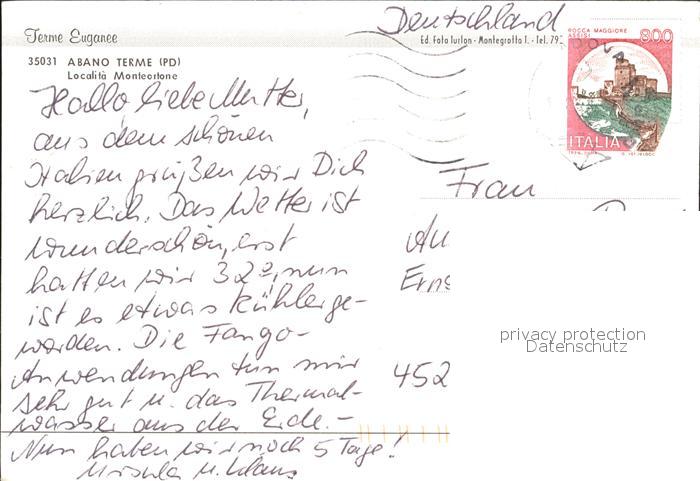 Terme Euganee
35031 ABANO TERME (PD)
Località Monteortone
Ed. Foto Turlon - Montegrotto T. - Tel. 79
Deutschland
ROCCA MAGGIORE
ASSISI
800
ITALIA
Hallo liebe Mutter,
aus dem schönen
Italien grüßen wir Dich
herzlich. Das Wetter ist
wunderschön, erst
hatten wir 32°, nun
ist es etwas kühler ge-
worden. Die Fango-
Anwendungen tun mir
sehr gut u. das Thermal-
wasser aus der Erde.-
Nun haben wir noch 5 Tage!
Ursula u. Klaus
Frau
452
privacy protection
Datenschutz